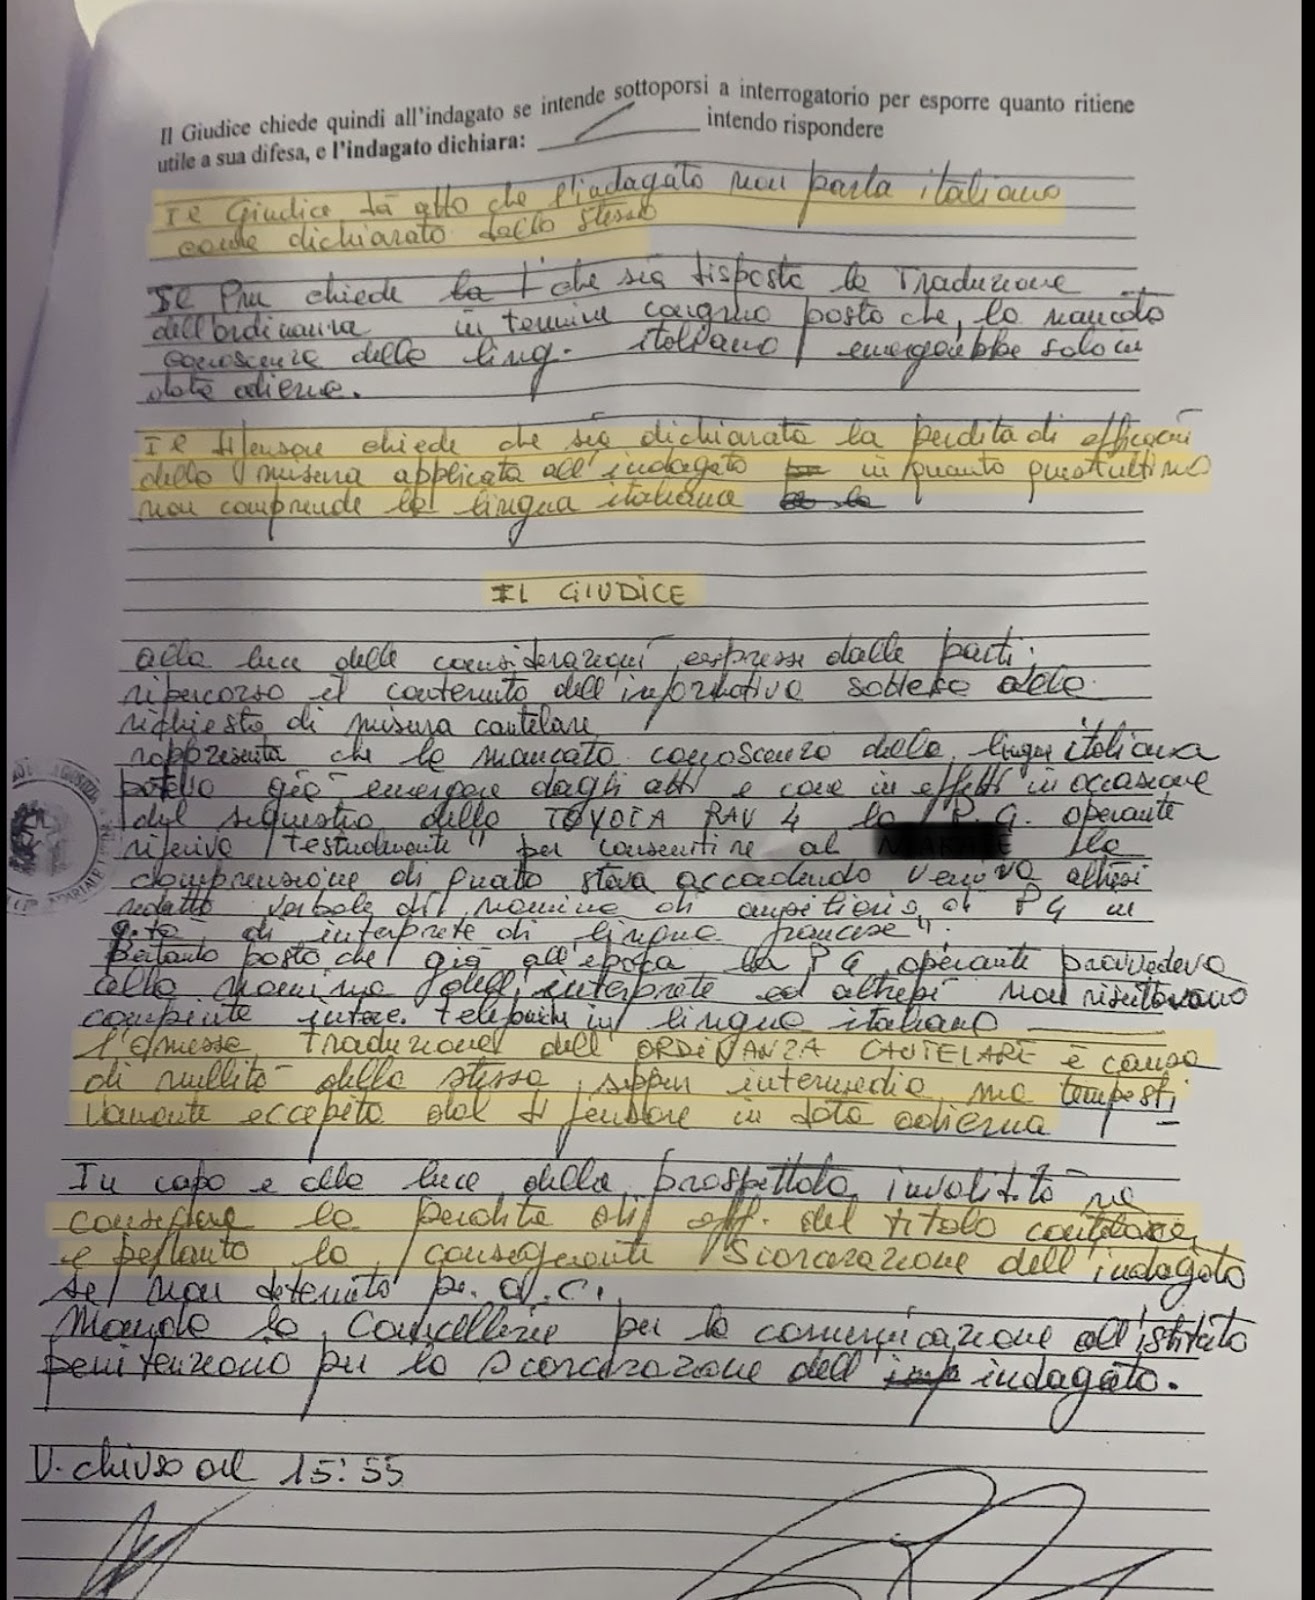 Il Giudice chiede quindi all'indagato se intende sottoporsi a interrogatorio per esporre quanto ritiene
utile a sua difesa, e l'indagato dichiara: intendo rispondere
Il Giudice dà atto che l'indagato non parla italiano
come dichiarato dallo stesso
Il Pm chiede la t che sia disposta la Traduzione
dell'ordinanza in termine congruo posto che, la mancata
conoscenza della ling. italiana emergerebbe solo in
data odierna.
Il difensore chiede che sia dichiarata la perdita di efficacia
della misura applicata all'indagato in quanto quest'ultimo
non comprende la lingua italiana
IL GIUDICE
alla luce delle considerazioni espresse dalle parti;
ripercorso il contenuto dell'informativa sottesa alla
richiesta di misura cautelare
rappresenta che la mancata conoscenza della lingua italiana
poteva già emergere dagli atti e come in effetti in occasione
del sequestro della TOYOTA RAV 4 la P.G. operante
riferiva testualmente "per consentire al la
comprensione di quanto stava accadendo veniva altresì
redatto verbale di nomina di ausiliario di PG in
q.tà di interprete di lingua francese".
Pertanto posto che già all'epoca la PG operante provvedeva
alla nomina dell'interprete ed altresì non risultavano
compiute interc. telefoniche in lingua italiana
l'omessa traduzione dell'ORDINANZA CAUTELARE è causa
di nullità della stessa, seppur intermedia, ma tempesti
vamente eccepita dal difensore in data odierna
In capo e alla luce della prospettata invalidità ne
consegue la perdita di eff. del titolo cautelare,
e pertanto la conseguente scarcerazione dell'indagato
se non detenuto p. a. c.
Manda la Cancelleria per la comunicazione all'istituto
penitenziario per la scarcerazione dell' indagato.
V. chiuso al 15:55